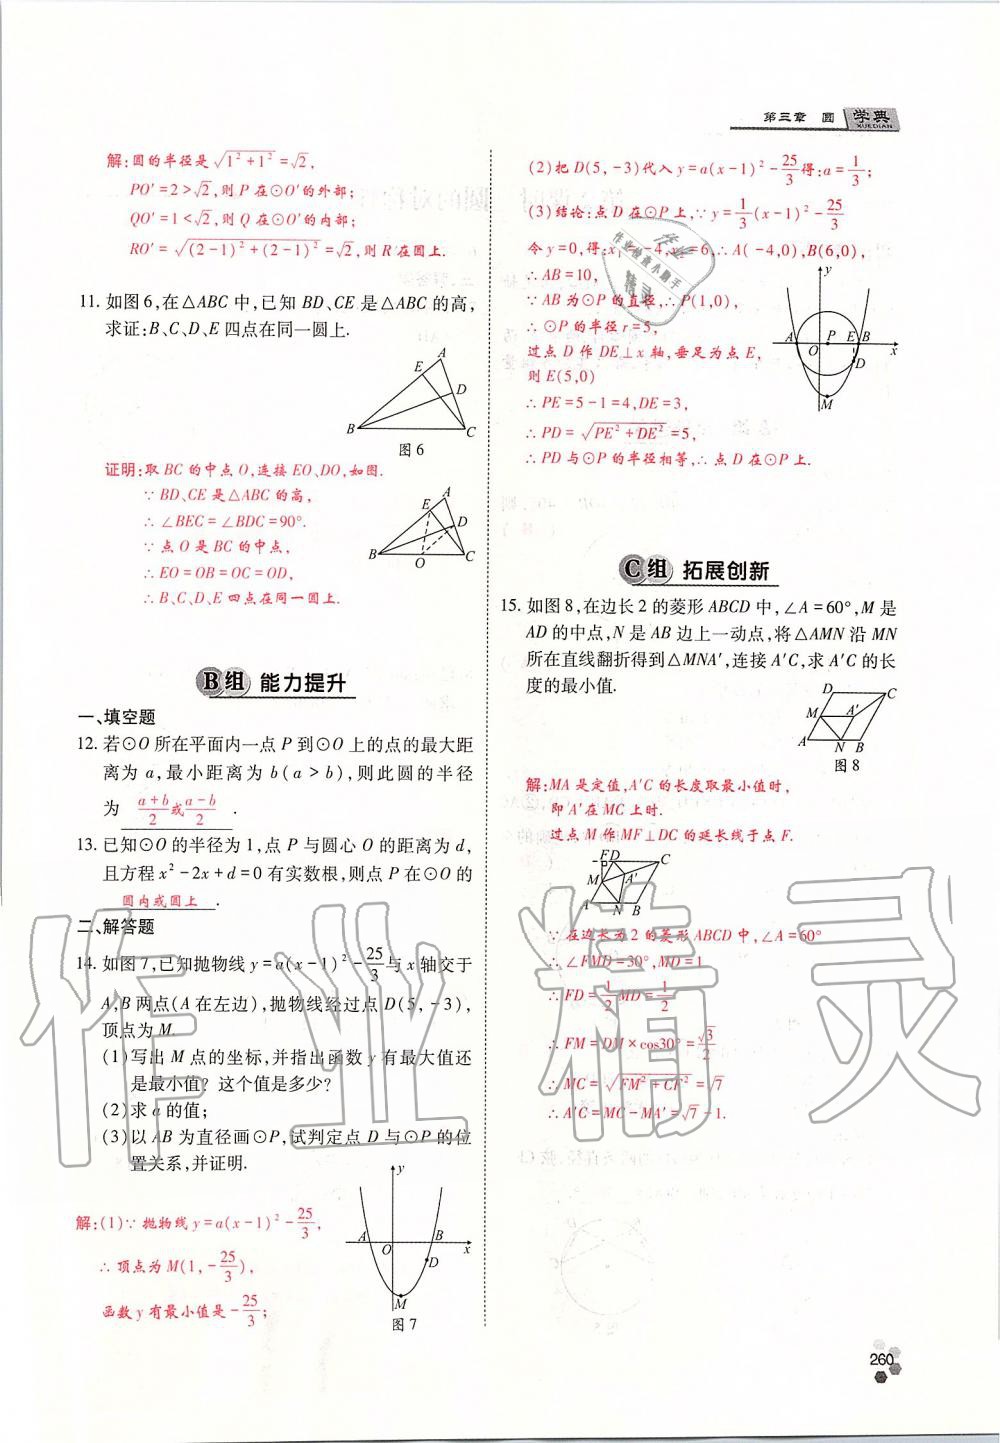 第三章 圆 学典
XUEDIAN
解:圆的半径是√(1²+1²)=√2,
PO′=2>√2,则 P 在⊙O′的外部;
QO′=1<√2,则 Q 在⊙O′的内部;
RO′=√((2-1)²+(2-1)²)=√2,则 R 在圆上.
11. 如图 6,在△ABC 中,已知 BD、CE 是△ABC 的高,
求证:B、C、D、E 四点在同一圆上.
A
E
D
B
C
图 6
证明:取 BC 的中点 O,连接 EO、DO,如图.
∵ BD、CE 是△ABC 的高,
∴ ∠BEC=∠BDC=90°.
∵ 点 O 是 BC 的中点,
∴ EO=OB=OC=OD,
∴ B、C、D、E 四点在同一圆上.
A
E
D
B
O
C
B组 能力提升
一、填空题
12. 若⊙O 所在平面内一点 P 到⊙O 上的点的最大距
离为 a,最小距离为 b(a>b),则此圆的半径
为 (a+b)/2 或 (a-b)/2 .
13. 已知⊙O 的半径为 1,点 P 与圆心 O 的距离为 d,
且方程 x²-2x+d=0 有实数根,则点 P 在⊙O 的
圆内或圆上 .
二、解答题
14. 如图 7,已知抛物线 y=a(x-1)²-25/3 与 x 轴交于
A,B 两点(A 在左边),抛物线经过点 D(5,-3),
顶点为 M.
(1)写出 M 点的坐标,并指出函数 y 有最大值还
是最小值? 这个值是多少?
(2)求 a 的值;
(3)以 AB 为直径画⊙P,试判定点 D 与⊙P 的位
置关系,并证明.
解:(1)∵ 抛物线 y=a(x-1)²-25/3,
∴ 顶点为 M(1,-25/3),
函数 y 有最小值是-25/3;
y
A
O
B
x
D
M
图 7
(2)把 D(5,-3)代入 y=a(x-1)²-25/3得:a=1/3;
(3)结论:点 D 在⊙P 上,∵ y=1/3(x-1)²-25/3
令 y=0,得:x₁=-4,x₂=6,∴ A(-4,0),B(6,0),
∴ AB=10,
∵ AB 为⊙P 的直径,∴ P(1,0),
∴ ⊙P 的半径 r=5,
过点 D 作 DE⊥x 轴,垂足为点 E,
则 E(5,0)
∴ PE=5-1=4,DE=3,
∴ PD=√(PE²+DE²)=5,
∴ PD 与⊙P 的半径相等,∴ 点 D 在⊙P 上.
y
A
O
P
E
B
x
D
M
作业
作业检查小助手
精灵
C组 拓展创新
15. 如图 8,在边长 2 的菱形 ABCD 中,∠A=60°,M 是
AD 的中点,N 是 AB 边上一动点,将△AMN 沿 MN
所在直线翻折得到△MNA′,连接 A′C,求 A′C 的长
度的最小值.
D
C
M
A′
A
N
B
图 8
解:MA 是定值,A′C 的长度取最小值时,
即 A′在 MC 上时.
过点 M 作 MF⊥DC 的延长线于点 F.
F
D
C
M
A′
A
N
B
∵ 在边长为 2 的菱形 ABCD 中,∠A=60°
∴ ∠FMD=30°,MD=1
∴ FD=1/2MD=1/2
∴ FM=DM×cos30°=√3/2
∴ MC=√(FM²+CF²)=√7
∴ A′C=MC-MA′=√7-1.
作业精灵
260